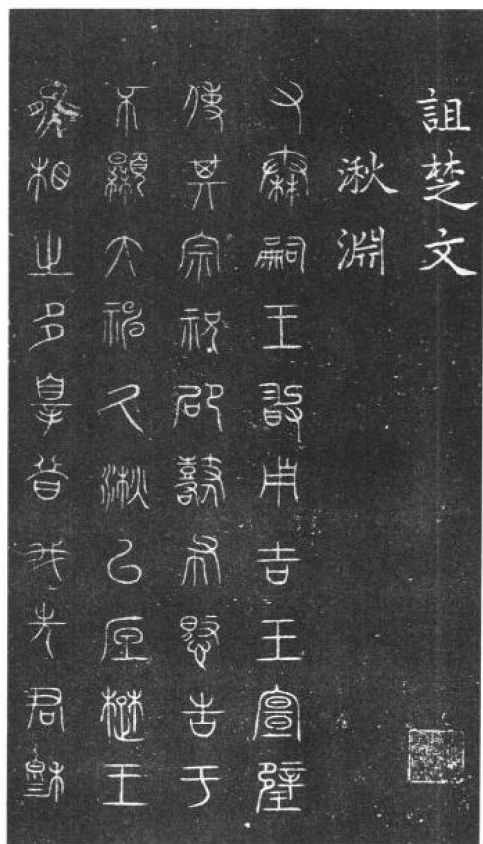 詛楚文
湫淵
又秦嗣王敢用吉玉宣璧
使其宗祝邵鼛布愍告于
不顯大神久湫㠯厎楚王
熊相之多辠昔我先君穆